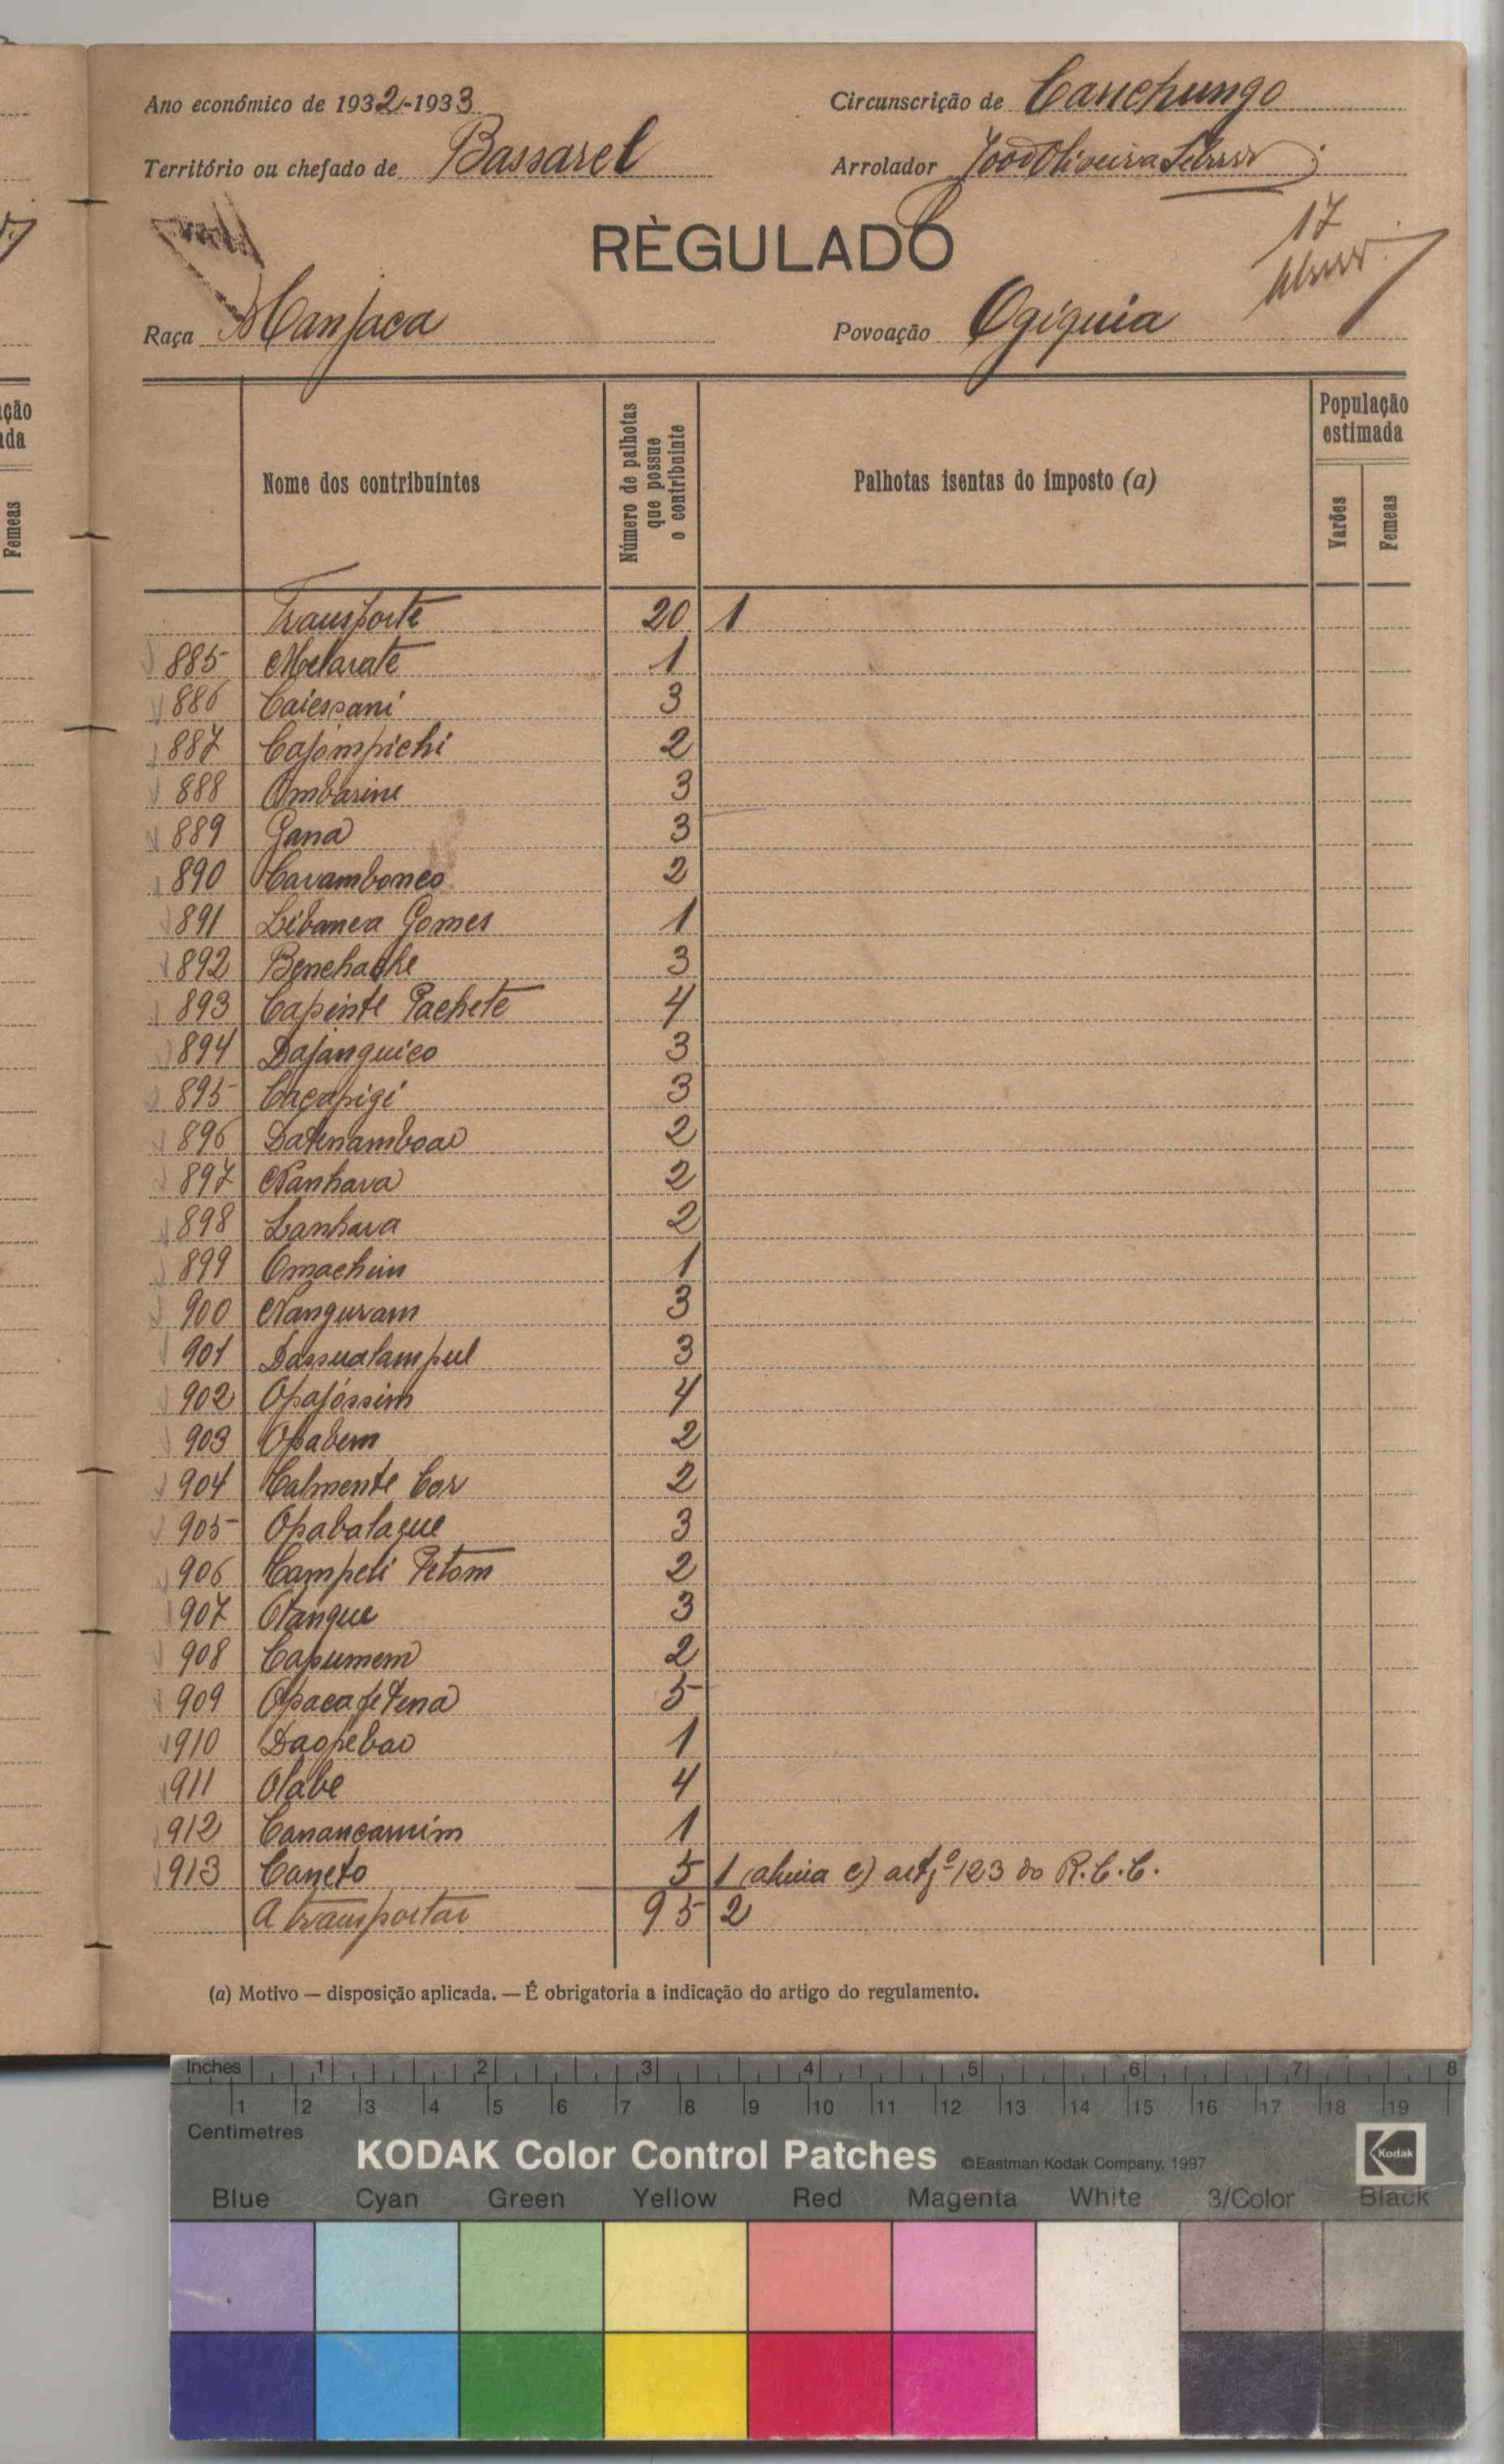 Ano económico de 1932-1933
Circunscrição de Canchungo
Território ou chefado de Bassarel
Arrolador João Oliveira
RÈGULADO
17
Raça Manjaca
Povoação Ogiguia
ção
da
Femeas
Nome dos contribuintes
Número de palhotas que possue o contribuinte
Palhotas isentas do imposto (a)
População estimada
Varões
Femeas
Transporte 20 1
885 Melarate 1
886 Caiessani 3
887 Cajómpichi 2
888 Ombarine 3
889 Gana 3
890 Carambonco 2
891 Libanea Gomes 1
892 Benchache 3
893 Capinte Pachete 4
894 Dajanguico 3
895 Caçapigi 3
896 Datenamboao 2
897 Nanhara 2
898 Lanhara 2
899 Omachim 1
900 Nanguram 3
901 Dassualampul 3
902 Opajóssim 4
903 Opabem 2
904 Calmente Cor 2
905 Opabalaque 3
906 Campeli Petom 2
907 Otangue 3
908 Capumem 2
909 Opacajetena 5
910 Daopebao 1
911 Olabe 4
912 Canancamim 1
913 Caneto 5 1 (alinia c) artº 123 do R.C.C.
A transportar 95 2
(a) Motivo — disposição aplicada. — É obrigatoria a indicação do artigo do regulamento.
Inches 1 2 3 4 5 6 7 8
1 2 3 4 5 6 7 8 9 10 11 12 13 14 15 16 17 18 19
Centimetres
KODAK Color Control Patches ©Eastman Kodak Company, 1997 Kodak
Blue Cyan Green Yellow Red Magenta White 3/Color Black